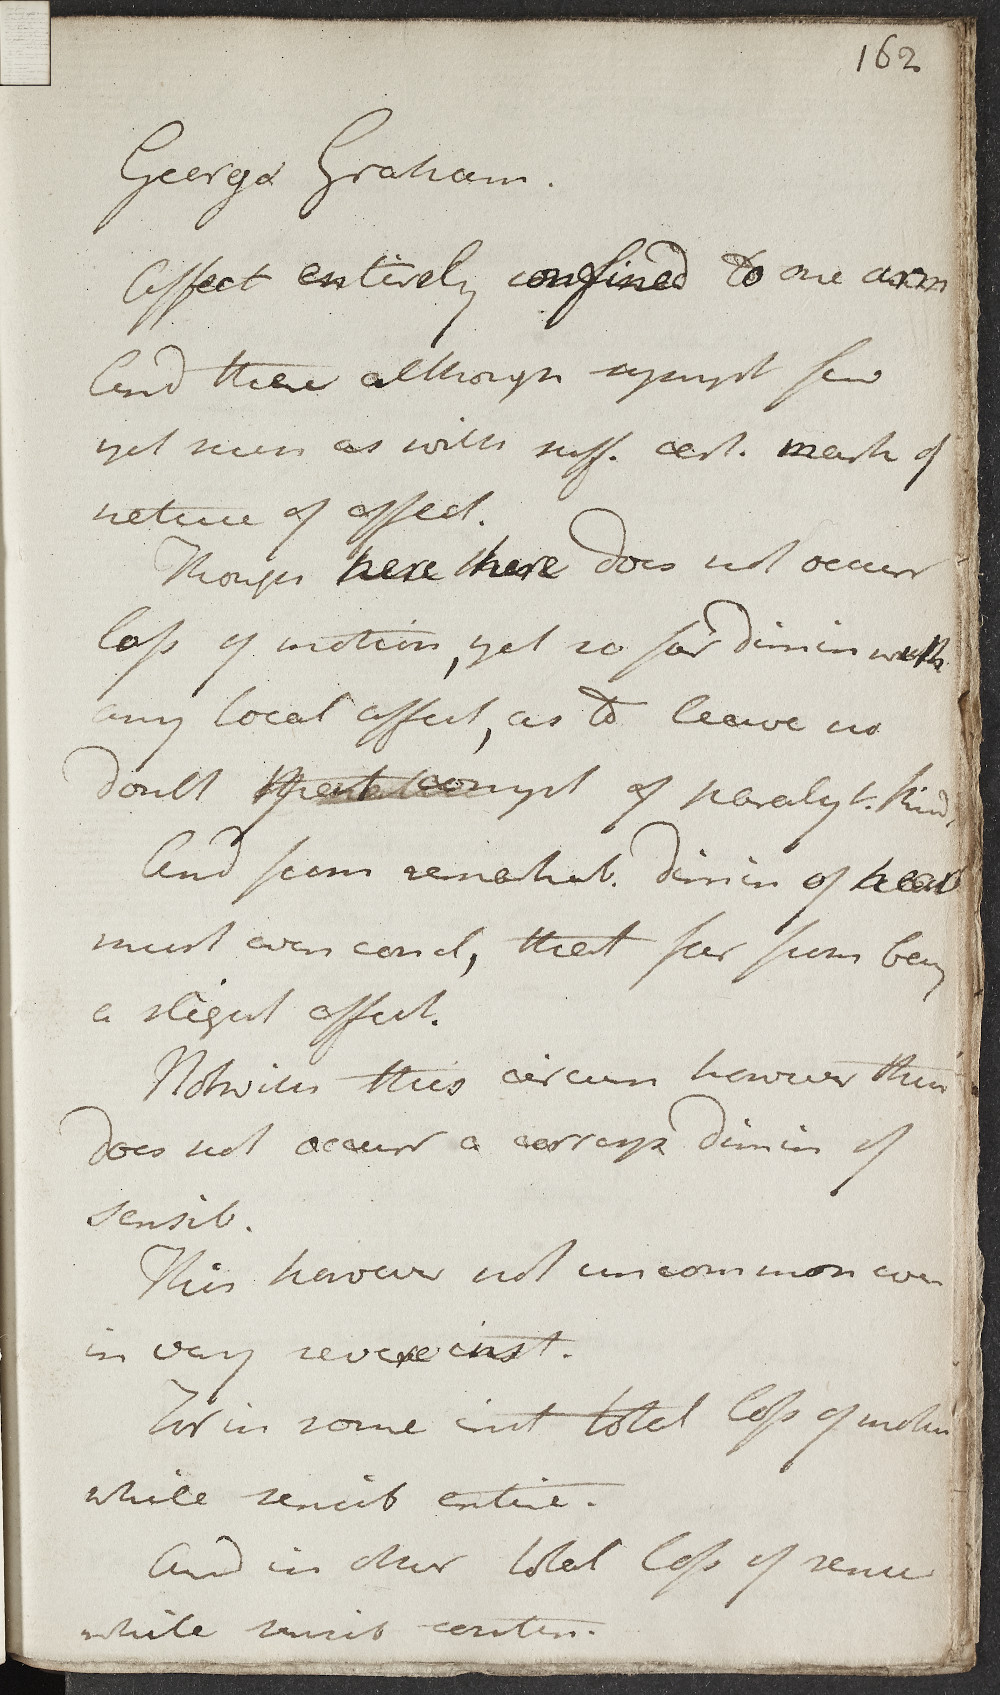 162
George Graham.
Affect entirely confined to one arm
And there although sympt few
yet seem as with suff. cert. mark of
nature of affect.
Though here there does not occurr
loss of motion, yet so far dimin with
any local affect, as to leave no
doubt of paralyt. kind.
And from remarkab. dimin of heat
must even concl, that far from being
a slight affect.
Notwith this circum however there
does not occurr a corresp dimin of
sensib.
This however not uncommon even
in very severe inst.
For in some inst total loss of motion
while sensib entire.
And in other total loss of sense
while